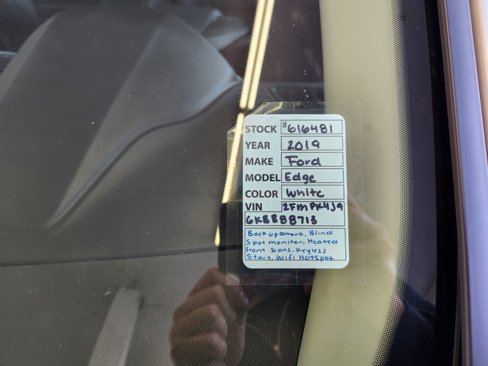 STOCK #616481
YEAR 2019
MAKE Ford
MODEL Edge
COLOR White
VIN 2FMPK4J9
6KBBB8713
Backup camera, Blind
Spot monitor, Heated
front seats, Keyless
Start, Wifi Hotspot